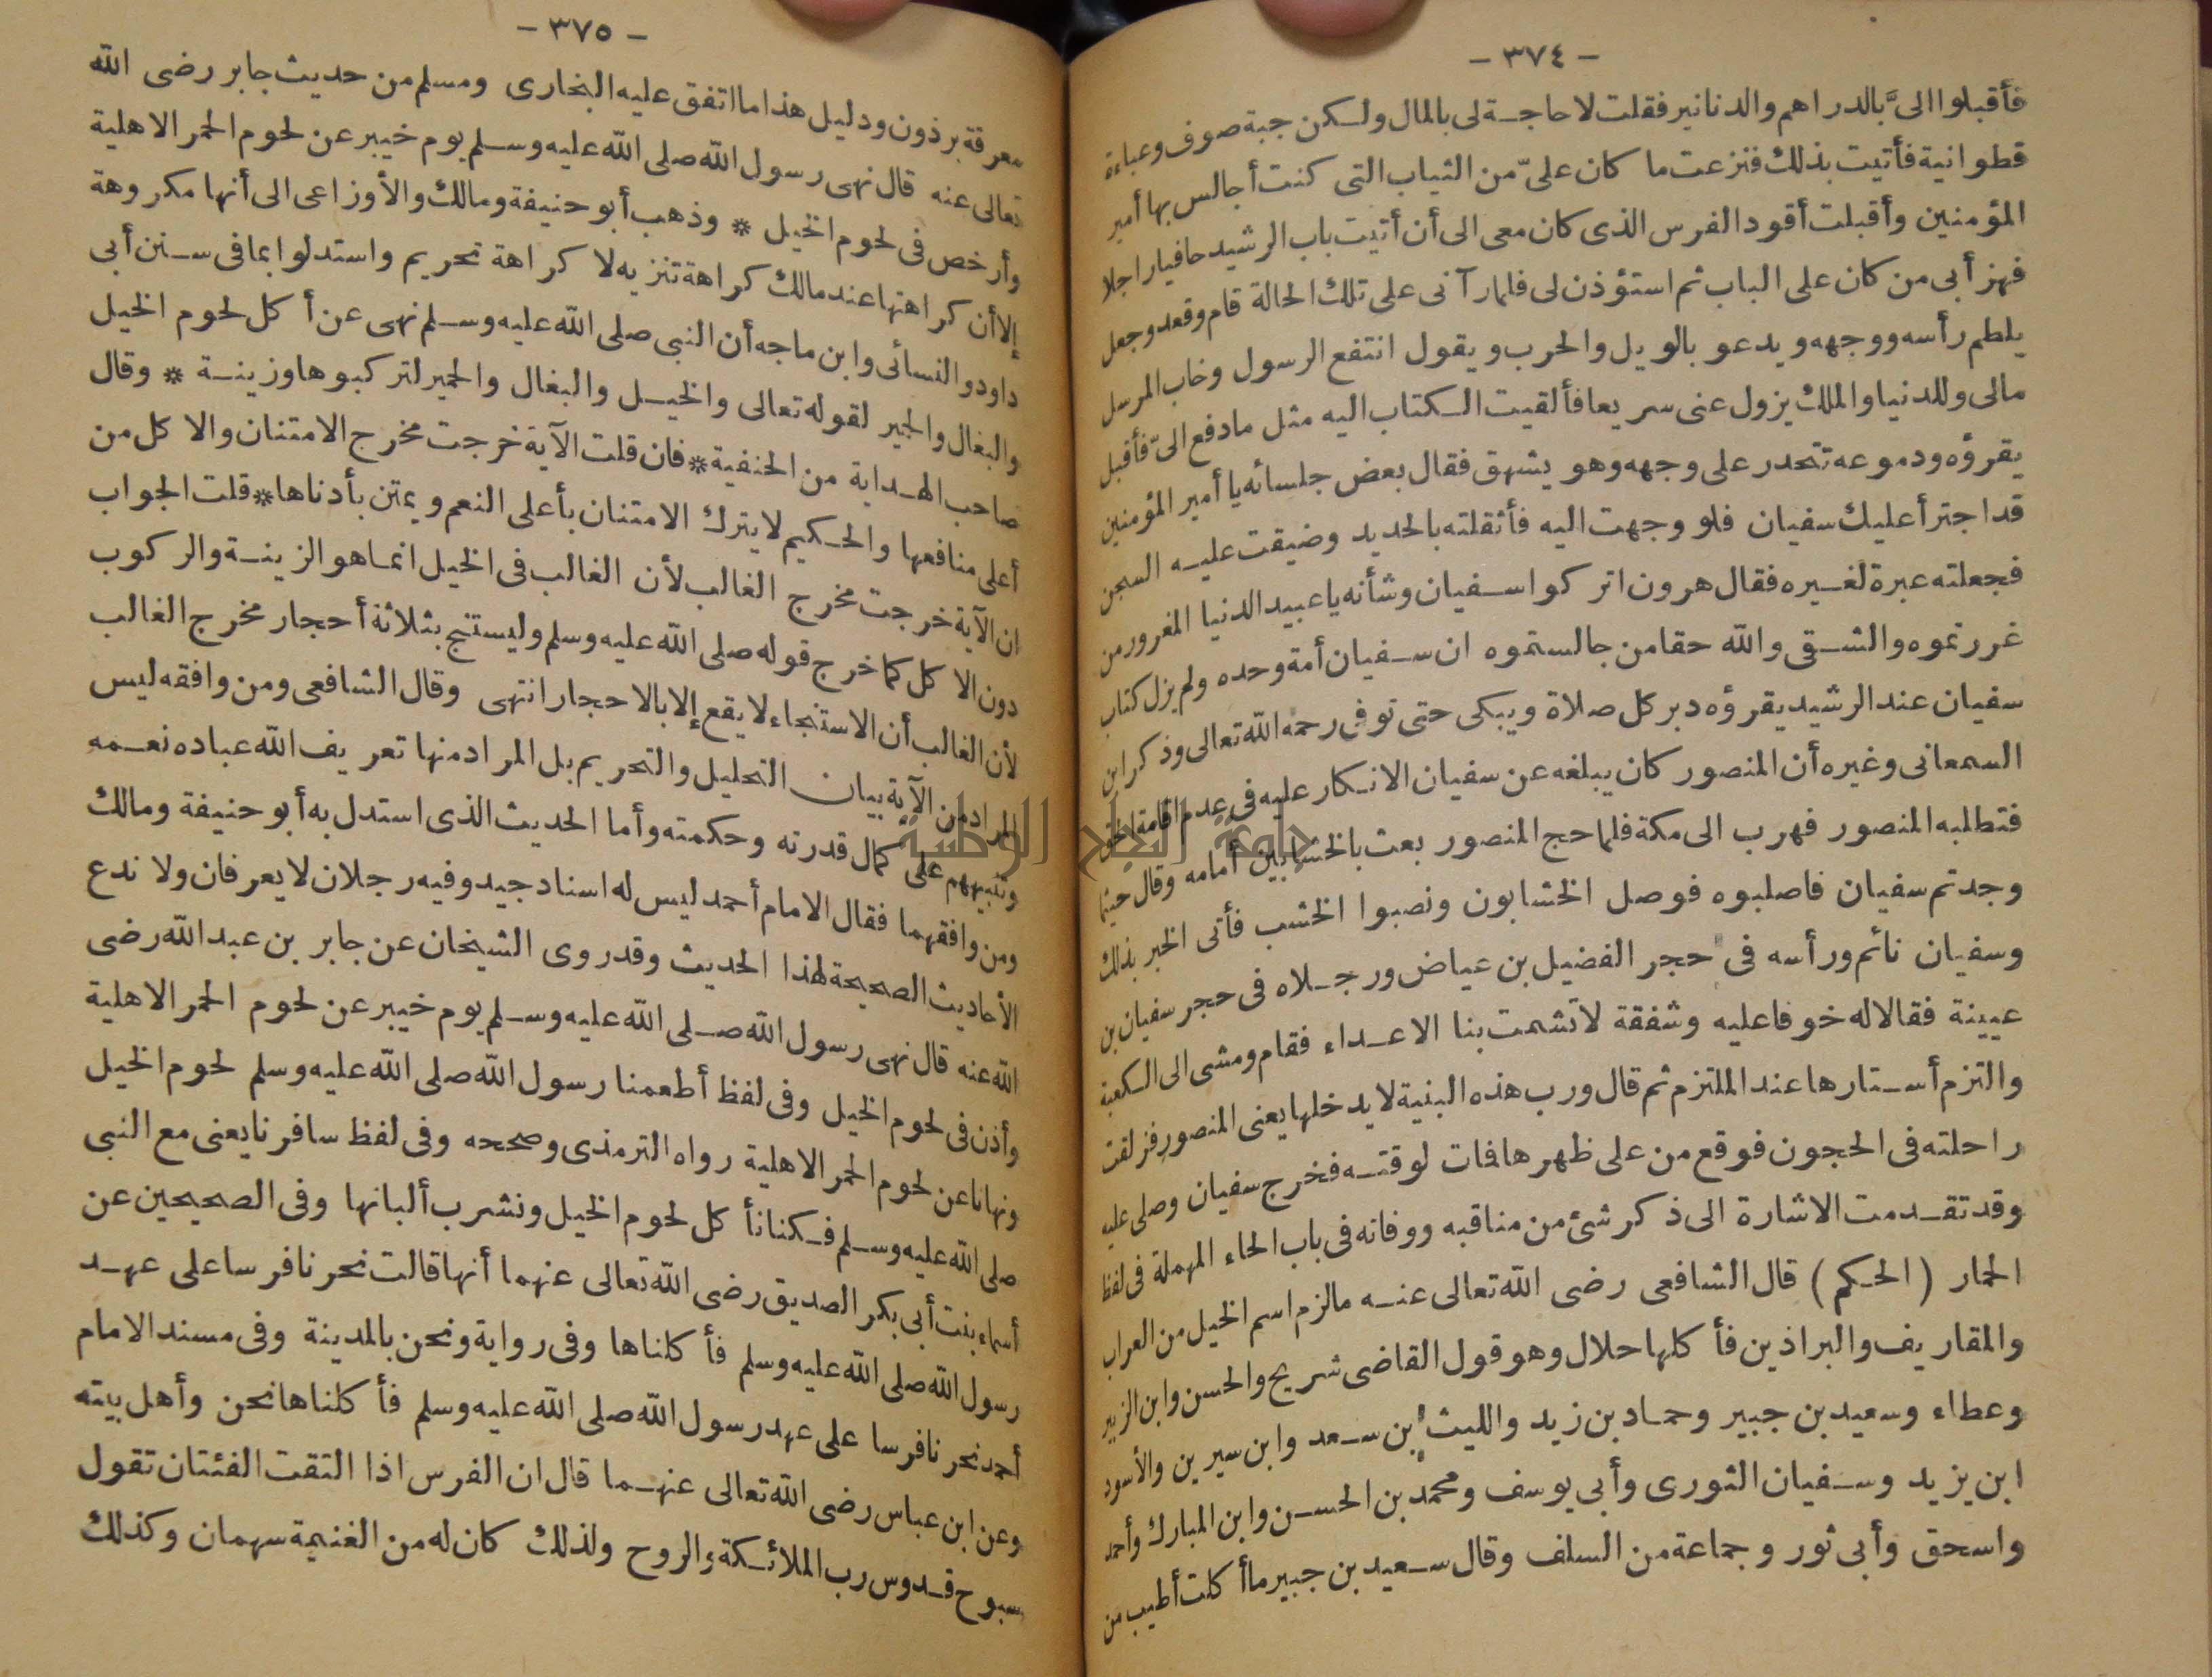 - ٣٧٤ -
فأقبلوا الىّ بالدراهم والدنانير فقلت لا حاجة لى بالمال ولكن جبة صوف وعباءة
قطوانية فأتيت بذلك فنزعت ما كان علىّ من الثياب التى كنت أجالس بها أمير
المؤمنين وأقبلت أقود الفرس الذى كان معى الى أن أتيت باب الرشيد حافيا راجلا
فهزأ بى من كان على الباب ثم استؤذن لى فلما رآنى على تلك الحالة قام وقعد وجعل
يلطم رأسه ووجهه ويدعو بالويل والحرب ويقول انتفع الرسول وخاب المرسل
مالى وللدنيا والملك يزول عنى سريعا فألقيت الكتاب اليه مثل ما دفع الىّ فأقبل
يقرؤه ودموعه تتحدر على وجهه وهو يشهق فقال بعض جلسائه يا أمير المؤمنين
قد اجترأ عليك سفيان فلو وجهت اليه فأثقلته بالحديد وضيقت عليه السجن
فجعلته عبرة لغيره فقال هرون اتركوا سفيان وشأنه يا عبيد الدنيا المغرور من
غررتموه والشقى والله حقا من جالستموه ان سفيان أمة وحده ولم يزل كتاب
سفيان عند الرشيد يقرؤه دبر كل صلاة ويبكى حتى توفى رحمه الله تعالى وذكر ابن
السمعانى وغيره أن المنصور كان يبلغه عن سفيان الانكار عليه فى عدم اقامة الحق
فتطلبه المنصور فهرب الى مكة فلما حج المنصور بعث بالخشابين أمامه وقال حيثما
وجدتم سفيان فاصلبوه فوصل الخشابون ونصبوا الخشب فأتى الخبر بذلك
وسفيان نائم ورأسه فى حجر الفضيل بن عياض ورجلاه فى حجر سفيان بن
عيينة فقالا له خوفا عليه وشفقة لا تشمت بنا الاعداء فقام ومشى الى الكعبة
والتزم أستارها عند الملتزم ثم قال ورب هذه البنية لا يدخلها يعنى المنصور فزلقت
راحلته فى الحجون فوقع من على ظهرها فمات لوقته فخرج سفيان وصلى عليه
وقد تقدمت الاشارة الى ذكر شئ من مناقبه ووفاته فى باب الحاء المهملة فى لفظ
الحمار (الحكم) قال الشافعى رضى الله تعالى عنه ما لزم اسم الخيل من العراب
والمقاريف والبراذين فأكلها حلال وهو قول القاضى شريح والحسن وابن الزبير
وعطاء وسعيد بن جبير وحماد بن زيد والليث بن سعد وابن سيرين والأسود
ابن يزيد وسفيان الثورى وأبى يوسف ومحمد بن الحسن وابن المبارك وأحمد
واسحق وأبى ثور وجماعة من السلف وقال سعيد بن جبير ما أكلت أطيب من
- ٣٧٥ -
معرفة برذون ودليل هذا ما اتفق عليه البخارى ومسلم من حديث جابر رضى الله
تعالى عنه قال نهى رسول الله صلى الله عليه وسلم يوم خيبر عن لحوم الحمر الاهلية
وأرخص فى لحوم الخيل * وذهب أبو حنيفة ومالك والأوزاعى الى أنها مكروهة
إلا أن كراهتها عند مالك كراهة تنزيه لا كراهة تحريم واستدلوا بما فى سنن أبى
داود والنسائى وابن ماجه أن النبى صلى الله عليه وسلم نهى عن أكل لحوم الخيل
والبغال والحمير لقوله تعالى والخيل والبغال والحمير لتركبوها وزينة * وقال
صاحب الهداية من الحنفية * فان قلت الآية خرجت مخرج الامتنان والاكل من
أعلى منافعها والحكيم لا يترك الامتنان بأعلى النعم ويمتن بأدناها * قلت الجواب
ان الآية خرجت مخرج الغالب لأن الغالب فى الخيل انما هو الزينة والركوب
دون الاكل كما خرج قوله صلى الله عليه وسلم وليستنج بثلاثة أحجار مخرج الغالب
لأن الغالب أن الاستنجاء لا يقع إلا بالاحجار انتهى وقال الشافعى ومن وافقه ليس
المراد من الآية بيان التحليل والتحريم بل المراد منها تعريف الله عباده نعمه
وتنبيههم على كمال قدرته وحكمته وأما الحديث الذى استدل به أبو حنيفة ومالك
ومن وافقهما فقال الامام أحمد ليس له اسناد جيد وفيه رجلان لا يعرفان ولا ندع
الأحاديث الصحيحة لهذا الحديث وقد روى الشيخان عن جابر بن عبد الله رضى
الله عنه قال نهى رسول الله صلى الله عليه وسلم يوم خيبر عن لحوم الحمر الاهلية
وأذن فى لحوم الخيل وفى لفظ أطعمنا رسول الله صلى الله عليه وسلم لحوم الخيل
ونهانا عن لحوم الحمر الاهلية رواه الترمذى وصححه وفى لفظ سافرنا يعنى مع النبى
صلى الله عليه وسلم فكنا نأكل لحوم الخيل ونشرب ألبانها وفى الصحيحين عن
أسماء بنت أبى بكر الصديق رضى الله تعالى عنهما أنها قالت نحرنا فرسا على عهد
رسول الله صلى الله عليه وسلم فأكلناها وفى رواية ونحن بالمدينة وفى مسند الامام
أحمد نحرنا فرسا على عهد رسول الله صلى الله عليه وسلم فأكلناها نحن وأهل بيته
وعن ابن عباس رضى الله تعالى عنهما قال ان الفرس اذا التقت الفئتان تقول
سبوح قدوس رب الملائكة والروح ولذلك كان له من الغنيمة سهمان وكذلك
جامعة النجاح الوطنية